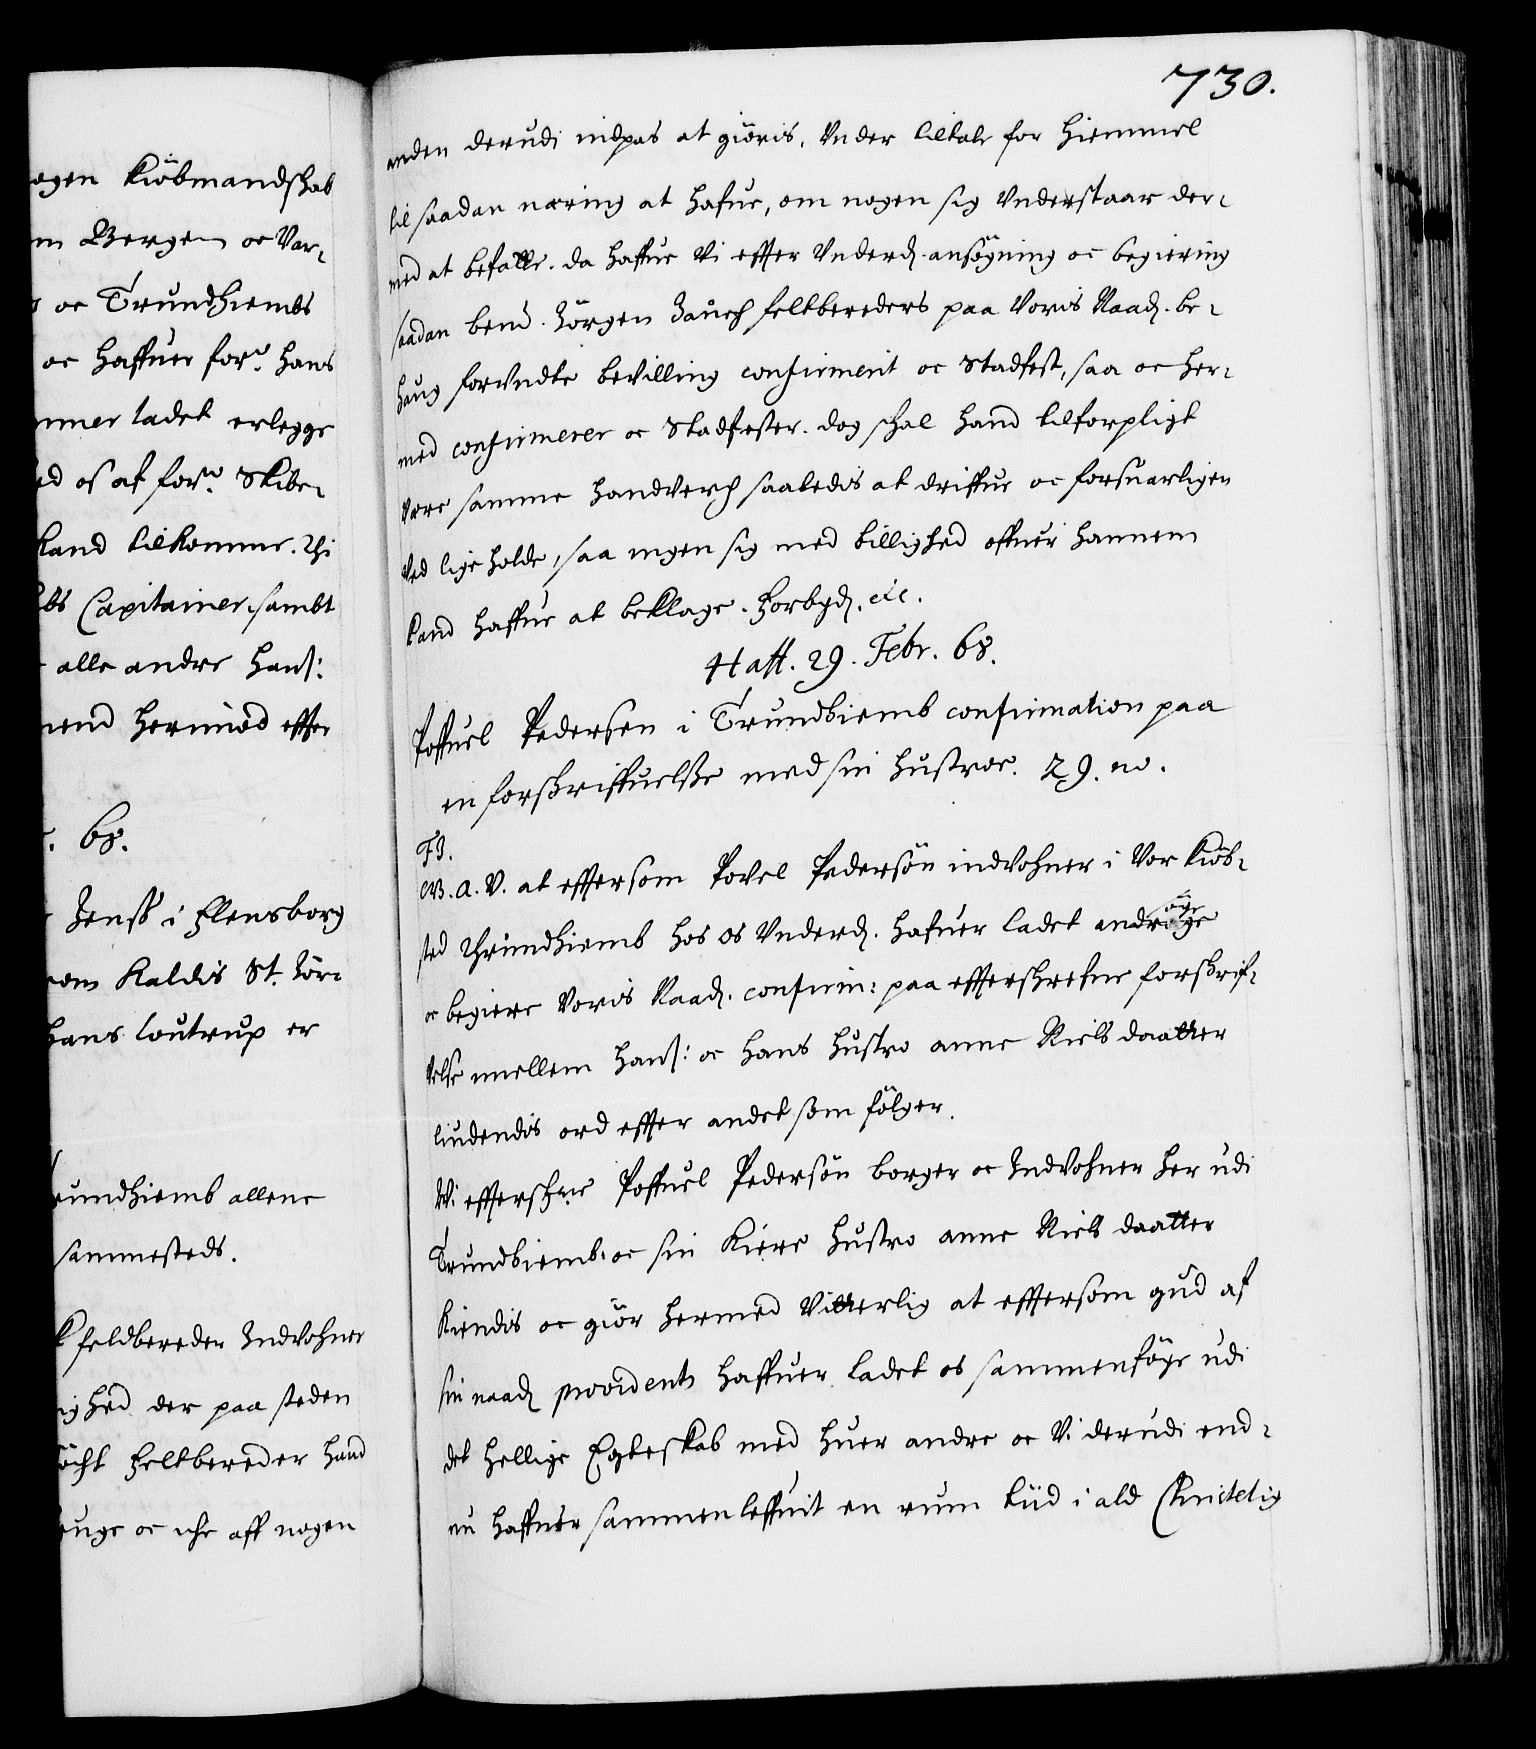 ogen Kiöbmandschab
m Bergen oc Var-
oc Trundhiembs
oc haffuer for: hans
mmer ladet erlegge
ed os af for: Skibe-
kand tilkomme. Thi
bs Capitainer, sambt
alle andre hans:
mend hermed effter
68.
Jenss i Flensborg
som kaldis St. Jör-
hans Loutrup er
rundhiemb allene
sammesteds.
feldbereder Indvohner
ighed der paa steden
öcht Feltbereder hand
euge oc aff nogen
730.
anden derudi indpas at giöris, Vnder tiltale for hiemmel
til saadan næring at hafue, om nogen sig Vnderstaar der-
med at befatte. da haffue Vi effter Vnderd. ansögning oc begiering
saadan bemt. Jörgen Bauch feltbereders paa Voris Naad. be-
hang forundte bevilling confirmerit oc Stadfest, saa oc her-
med confirmerer oc Stadfester. dog schal hand tilforpligt
være samme handverch saaledis at driffue oc forsuarligen
Ved lige holde, saa ingen sig med billighed offuer hannem
kand haffue at beklage. Forbyd. etc.
Haff. 29. Febr. 68.
Poffuel Pedersen i Trundhiemb confirmation paa
en forskriffuelse med sin hustroe. 29. no.
F3.
G. A. V. at effersom Povel Pedersön indvohner i Vor kiöb-
sted Thrundhiemb hos os Vnderd. hafuer ladet andrage
oc begiere Voris Naad. confirm: paa effterskrefne forskrif-
velse mellem hans: oc hans hustro anne Niels daatter
liudendis ord effter andet som fölger.
Wi effterschrne Poffuel Pedersön borger oc Indvohner her udi
Trundhiemb, oc sin kiere hustro anne Niels daatter
kiendis oc giör hermed Vitterlig at efftersom gud af
sin naad providents haffuer ladet os sammenföge udi
det hellige Egteskab med huer andre oc Vi derudi end-
nu haffuer sammen leffuit en rum tiid i ald Christelig